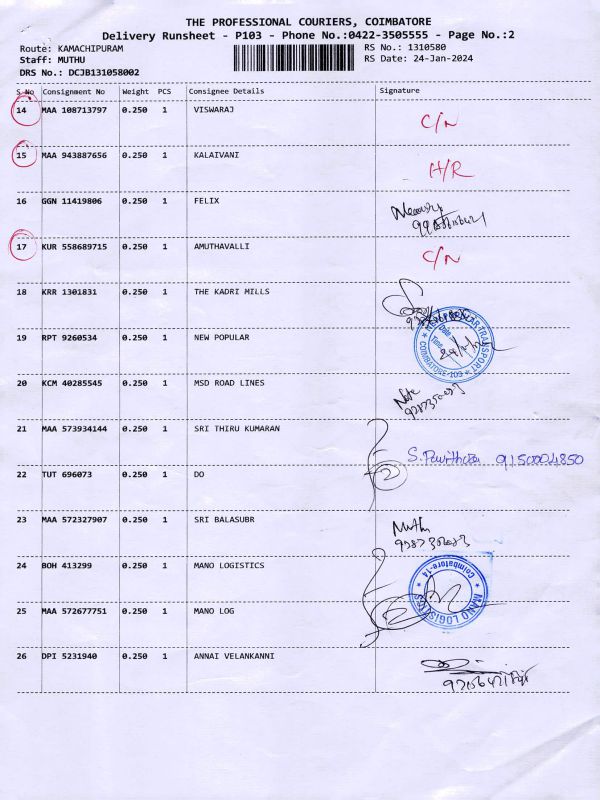 THE PROFESSIONAL COURIERS, COIMBATORE
Delivery Runsheet - P103 - Phone No.:0422-3505555 - Page No.:2
Route: KAMACHIPURAM RS No.: 1310580
Staff: MUTHU RS Date: 24-Jan-2024
DRS No.: DCJB131058002
S No Consignment No Weight PCS Consignee Details Signature
14 MAA 108713797 0.250 1 VISWARAJ C/N
15 MAA 943887656 0.250 1 KALAIVANI H/R
16 GGN 11419806 0.250 1 FELIX
17 KUR 558689715 0.250 1 AMUTHAVALLI C/N
18 KRR 1301831 0.250 1 THE KADRI MILLS
19 RPT 9260534 0.250 1 NEW POPULAR
COIMBATORE-103
20 KCM 40285545 0.250 1 MSD ROAD LINES
21 MAA 573934144 0.250 1 SRI THIRU KUMARAN
S. Pavithra 9150004850
22 TUT 696073 0.250 1 DO
23 MAA 572327907 0.250 1 SRI BALASUBR Muthu
24 BOH 413299 0.250 1 MANO LOGISTICS
Coimbatore-14
MANO LOGISTICS
25 MAA 572677751 0.250 1 MANO LOG
26 DPI 5231940 0.250 1 ANNAI VELANKANNI